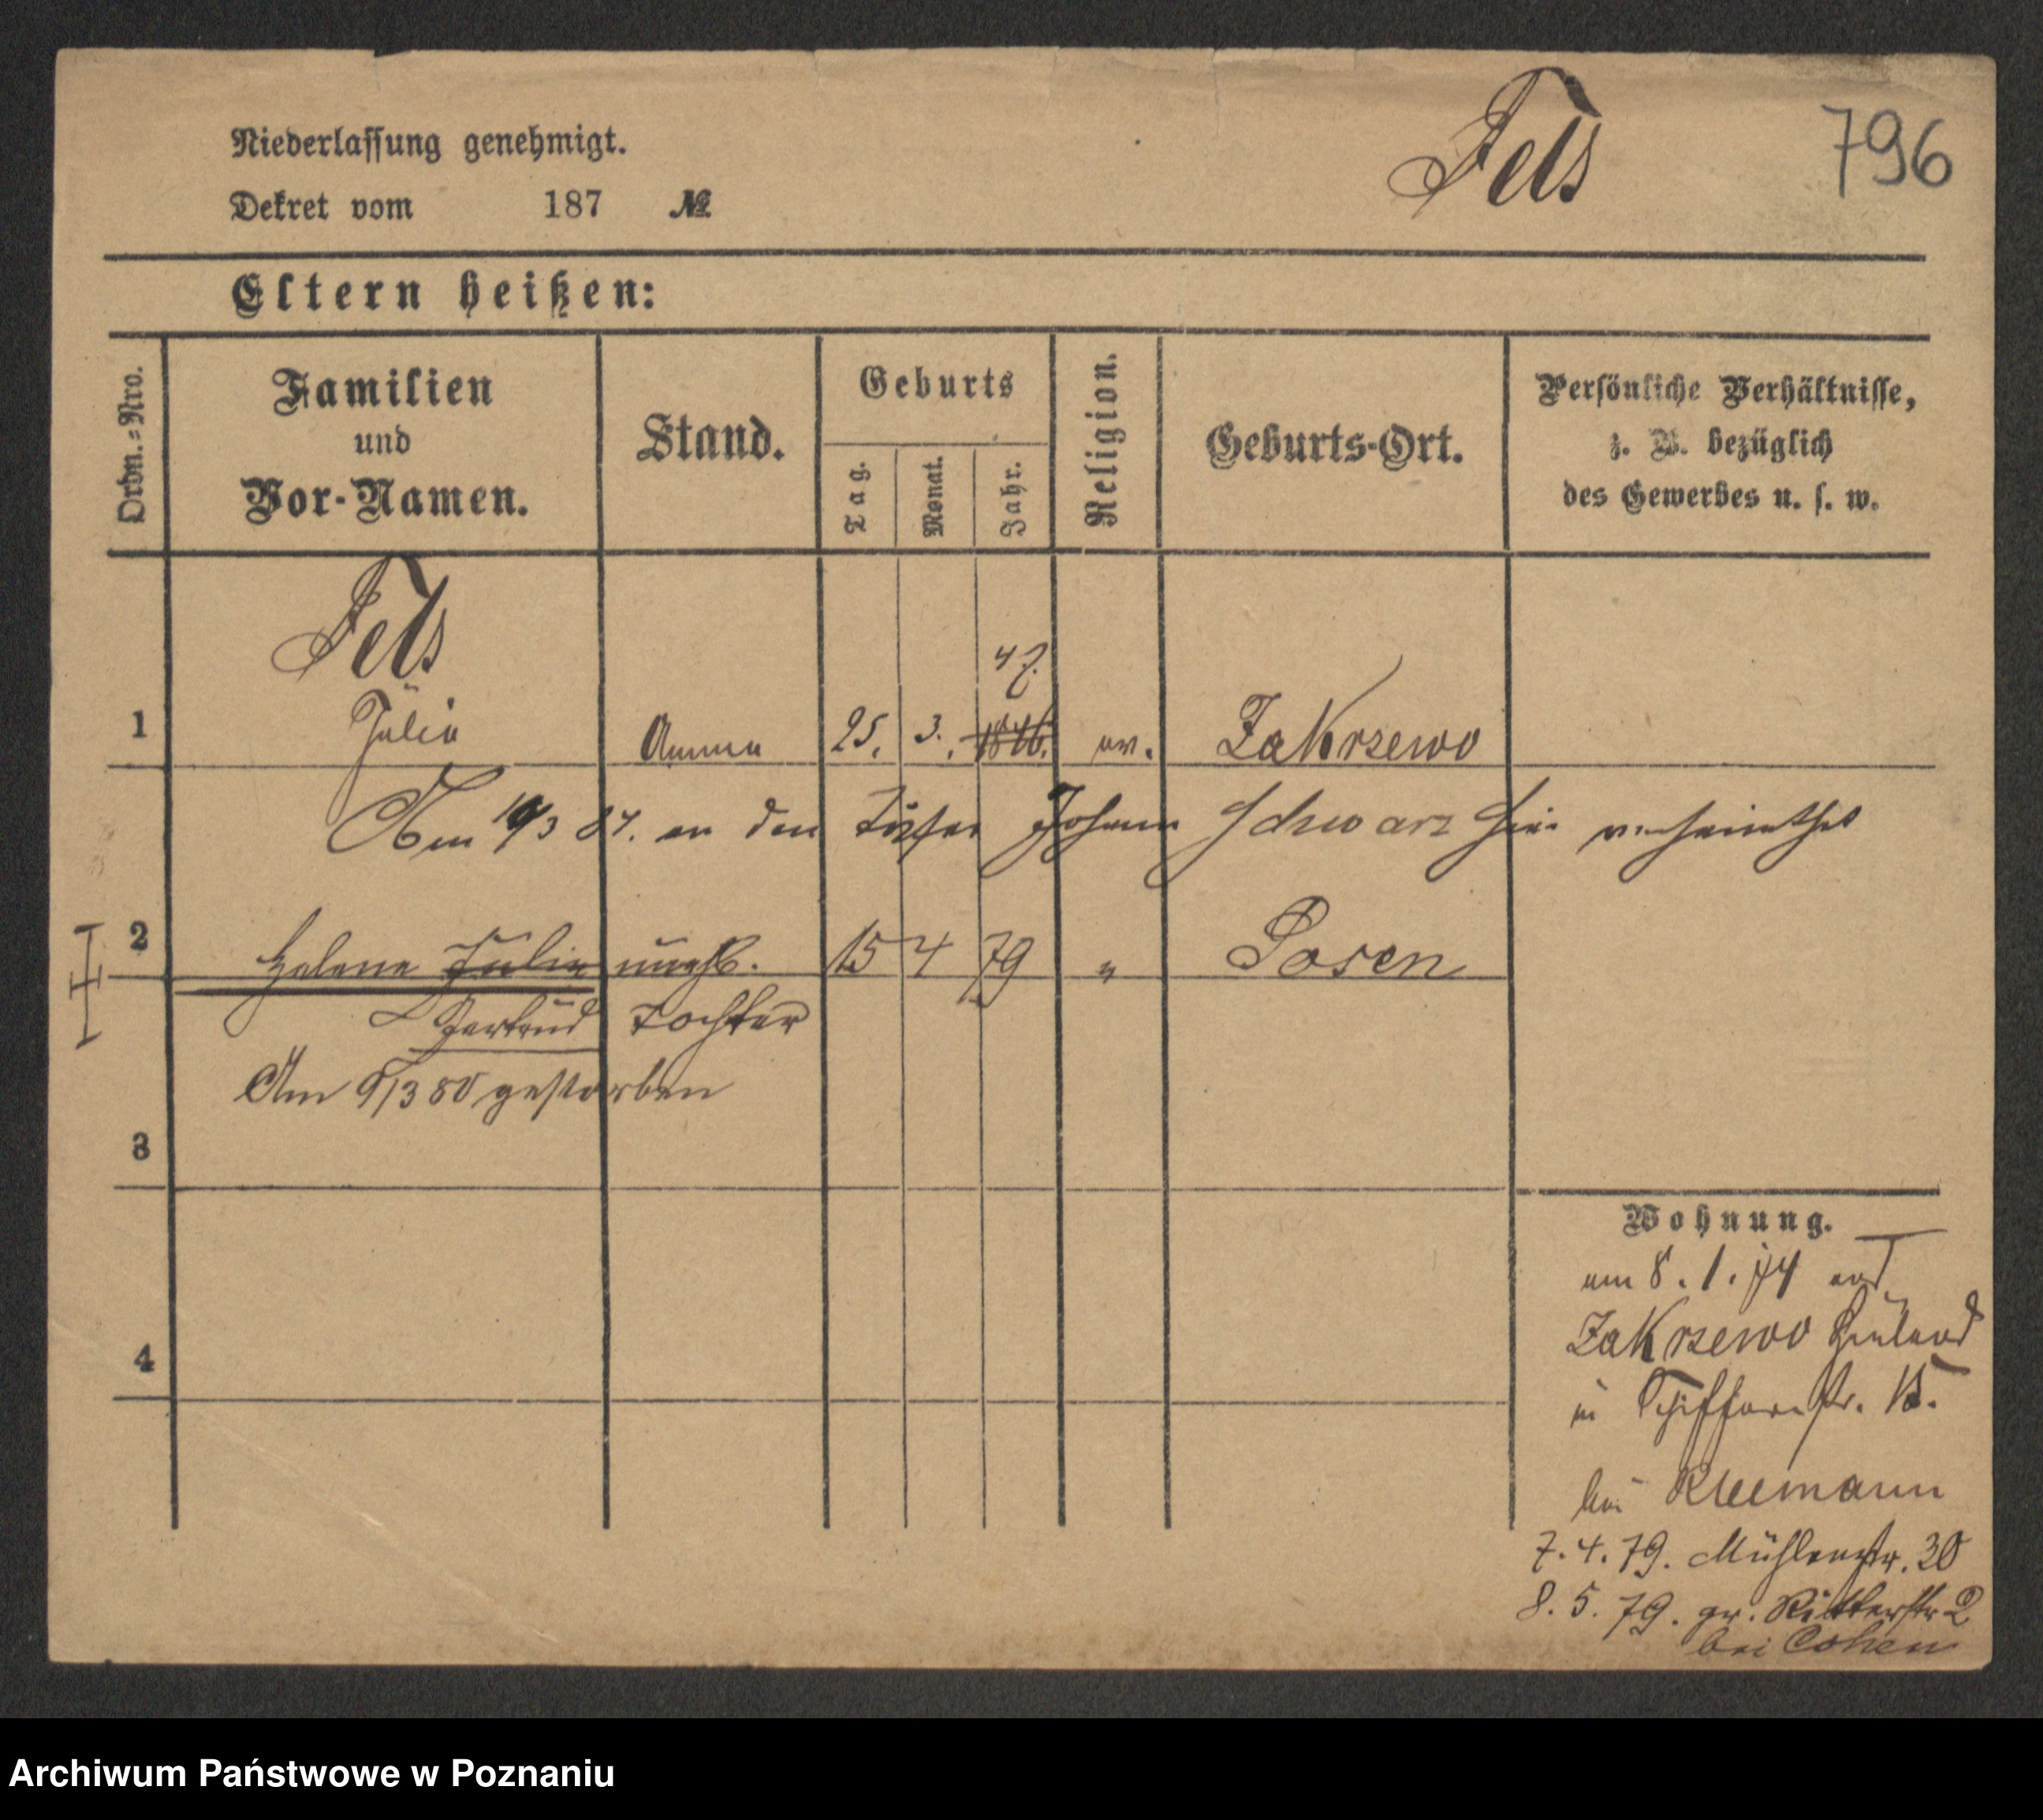 Fels
796
Niederlassung genehmigt.
Dekret vom 187 №
Eltern heißen:
Ordn.=Nro.
Familien und Vor-Namen.
Stand.
Geburts
Tag.
Monat.
Jahr.
Religion.
Geburts-Ort.
Persönliche Verhältnisse,
z. B. bezüglich
des Gewerbes u. s. w.
Fels
47.
1 Julia Amme 25. 3. 1846. ev. Zakrzewo
Am 3 84. an den Johann Schwarz hier verheirathet
2 Helene Julia unehl. 15 4 79 " Posen
Gertrud Tochter
Am 9/3 80 gestorben
3
4
Wohnung.
am 8. 1. 74 aus
Zakrzewo Hauland
in Schifferstr. 15.
bei Kleemann
7. 4. 79. Mühlenstr. 30
8. 5. 79. gr. Ritterstr 2
bei Cohen
Archiwum Państwowe w Poznaniu